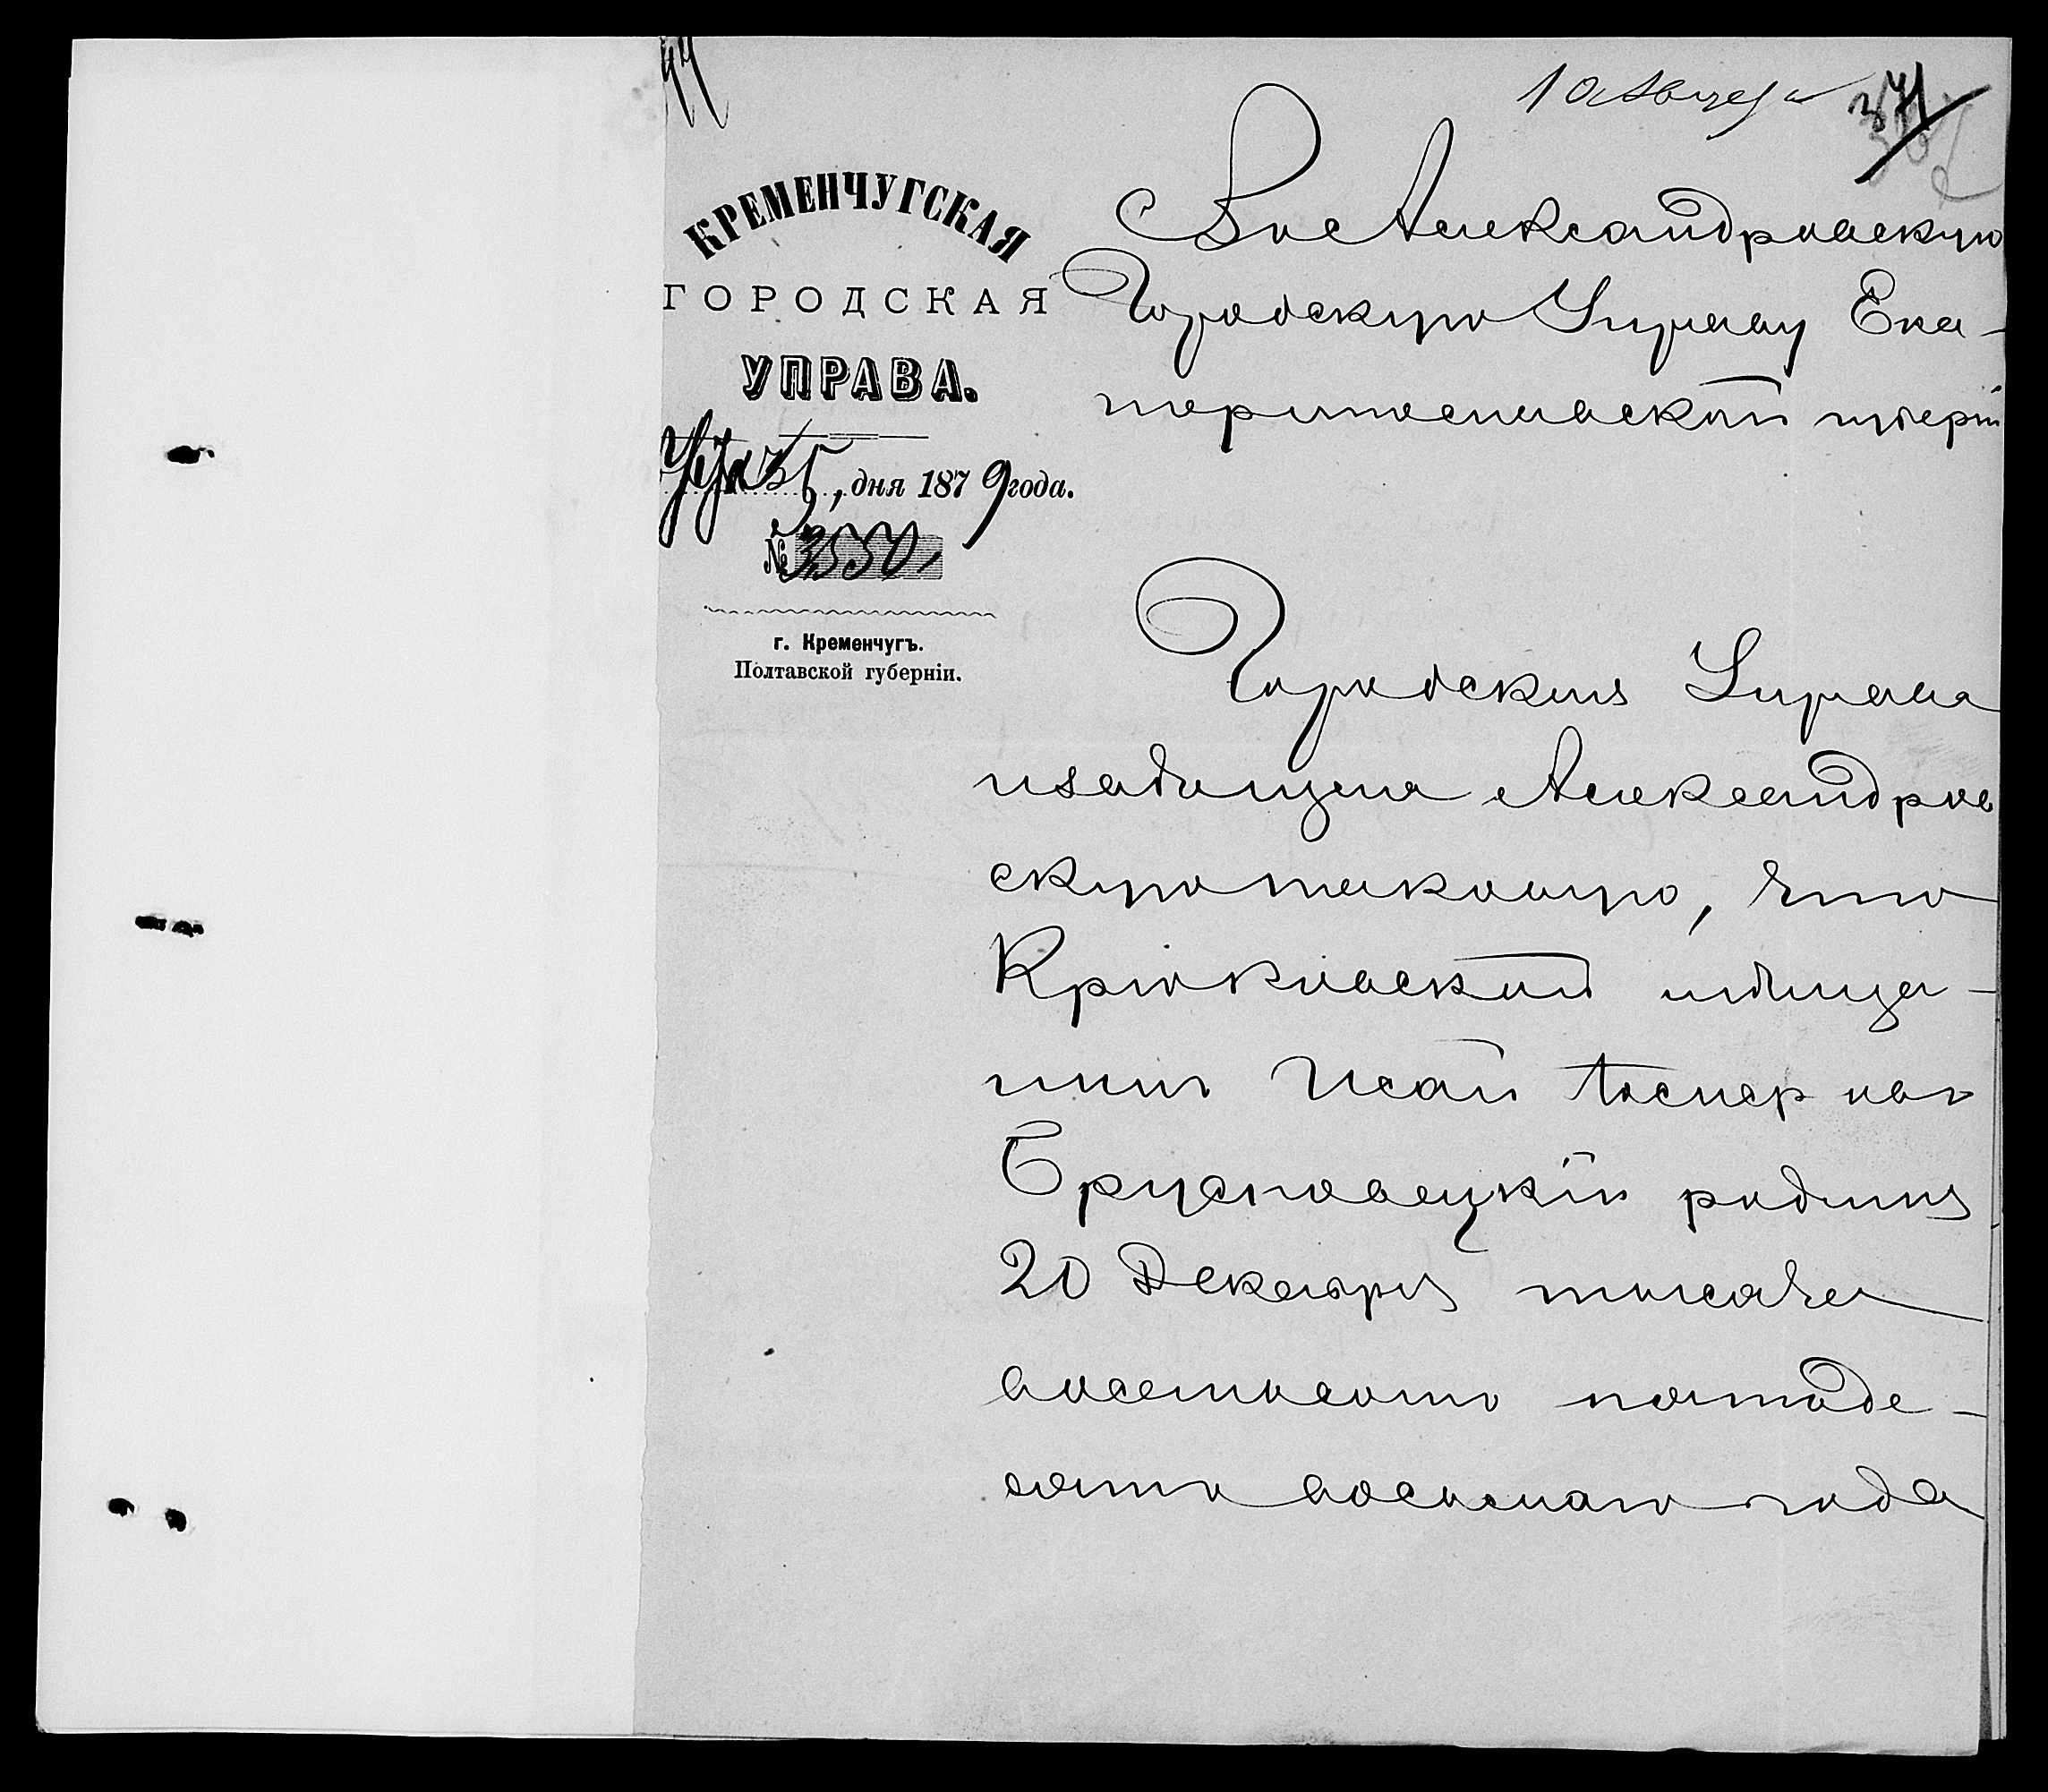 10 Августа
371
КРЕМЕНЧУГСКАЯ
ГОРОДСКАЯ
УПРАВА.
5, дня 1879 года.
№ 3550
г. Кременчугъ.
Полтавской губерніи.
Въ Александровскую
Городскую Управу Ека-
теринославской губерніи
Городская Управа
извѣщаетъ Александров
скую таковую, что
Крюковский мѣща-
нинъ Исай
Брусновецкій родился
20 Декабря тысяча
восемьсотъ пятьде-
сятъ восьмаго года